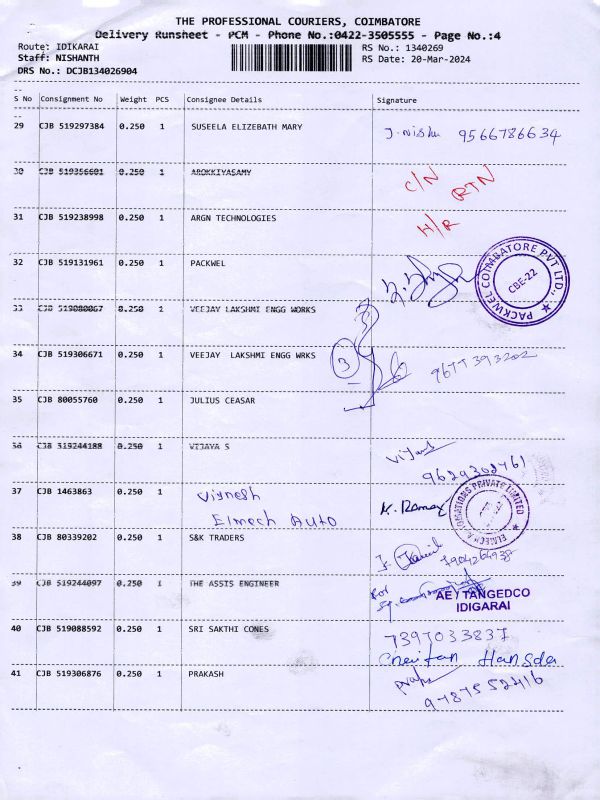 THE PROFESSIONAL COURIERS, COIMBATORE
Delivery Runsheet - PCM - Phone No.:0422-3505555 - Page No.:4
Route: IDIKARAI RS No.: 1340269
Staff: NISHANTH RS Date: 20-Mar-2024
DRS No.: DCJB134026904
S No Consignment No Weight PCS Consignee Details Signature
29 CJB 519297384 0.250 1 SUSEELA ELIZEBATH MARY J. Nishu 9566786634
30 CJB 519356601 0.250 1 AROKKIYASAMY C/N RTN
31 CJB 519238998 0.250 1 ARGN TECHNOLOGIES H/R
32 CJB 519131961 0.250 1 PACKWEL
PACKWEL COIMBATORE PVT LTD.,
CBE-22
33 CJB 519080067 0.250 1 VEEJAY LAKSHMI ENGG WORKS
34 CJB 519306671 0.250 1 VEEJAY LAKSHMI ENGG WRKS 3 9677393202
35 CJB 80055760 0.250 1 JULIUS CEASAR
36 CJB 519244188 0.250 1 VIJAYA S
9629302761
37 CJB 1463863 0.250 1 Vignesh K. Raman
Elmech Auto
ELMECH AUTOMATIONS PRIVATE LIMITED
38 CJB 80339202 0.250 1 S&K TRADERS 7904264938
39 CJB 519244097 0.250 1 THE ASSIS ENGINEER For AE / TANGEDCO
IDIGARAI
40 CJB 519088592 0.250 1 SRI SAKTHI CONES 7397033837
Hansda
41 CJB 519306876 0.250 1 PRAKASH
9787552416